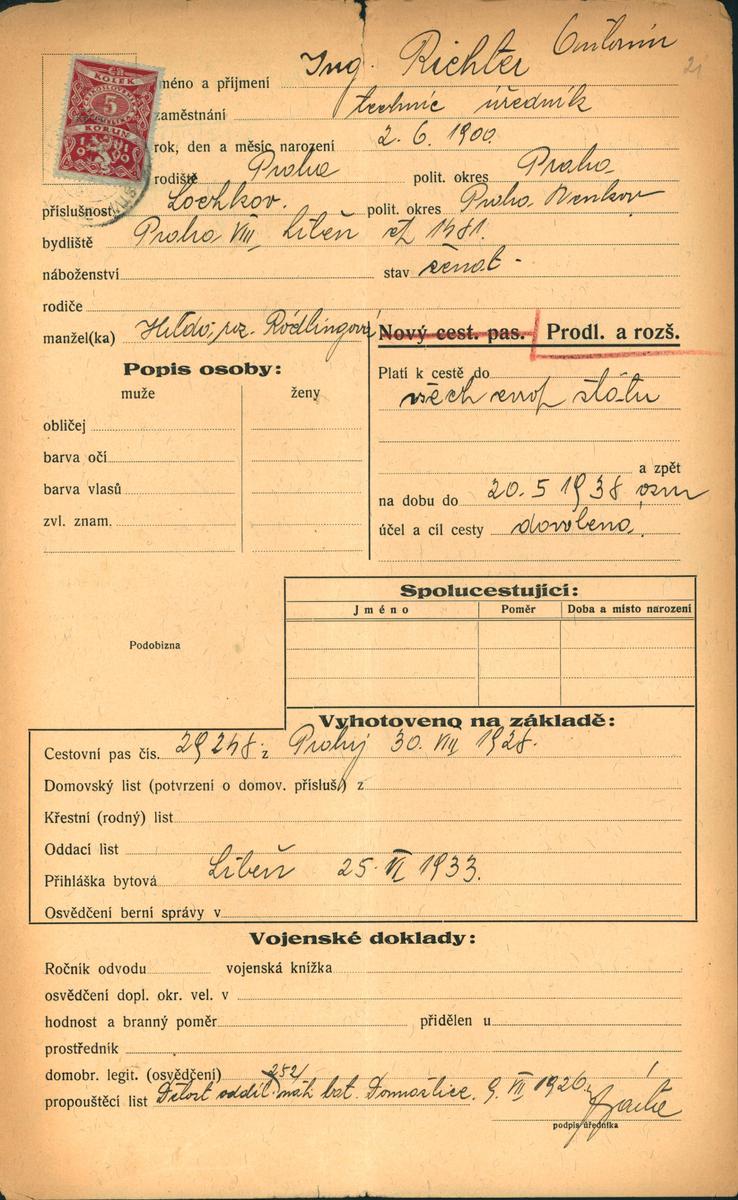 ČR
KOLEK
5
KORUN
1919
jméno a příjmení Ing. Richter Antonín
zaměstnání technic úředník
rok, den a měsíc narození 2. 6. 1900.
rodiště Praha polit. okres Praha
příslušnost Lochkov. polit. okres Praha Venkov
bydliště Praha VIII, Libeň čp 1481.
náboženství stav ženat -
rodiče
manžel(ka) Hilda, roz. Rödlingová
Nový cest. pas. Prodl. a rozš.
Popis osoby:
muže ženy
obličej
barva očí
barva vlasů
zvl. znam.
Platí k cestě do
všech evrop států
a zpět
na dobu do 20. 5 1938 osm
účel a cíl cesty dovolená.
Spolucestující:
Jméno Poměr Doba a místo narození
Podobizna
Vyhotoveno na základě:
Cestovní pas čís. 29248 z Prahy 30. VIII 1928.
Domovský list (potvrzení o domov. přísluš.) z
Křestní (rodný) list
Oddací list
Přihláška bytová Libeň 25. VI 1933.
Osvědčení berní správy v
Vojenské doklady:
Ročník odvodu vojenská knížka
osvědčení dopl. okr. vel. v
hodnost a branný poměr přidělen u
prostředník
domobr. legit. (osvědčení) 252/
propouštěcí list oddíl náh bat. Domažlice, 9. VII 1926.
podpis úředníka